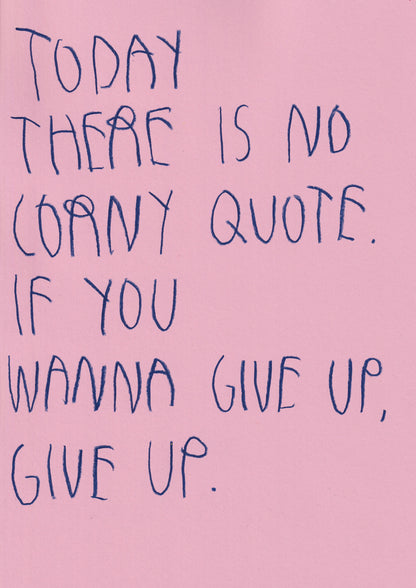 TODAY
THERE IS NO
CORNY QUOTE.
IF YOU
WANNA GIVE UP,
GIVE UP.